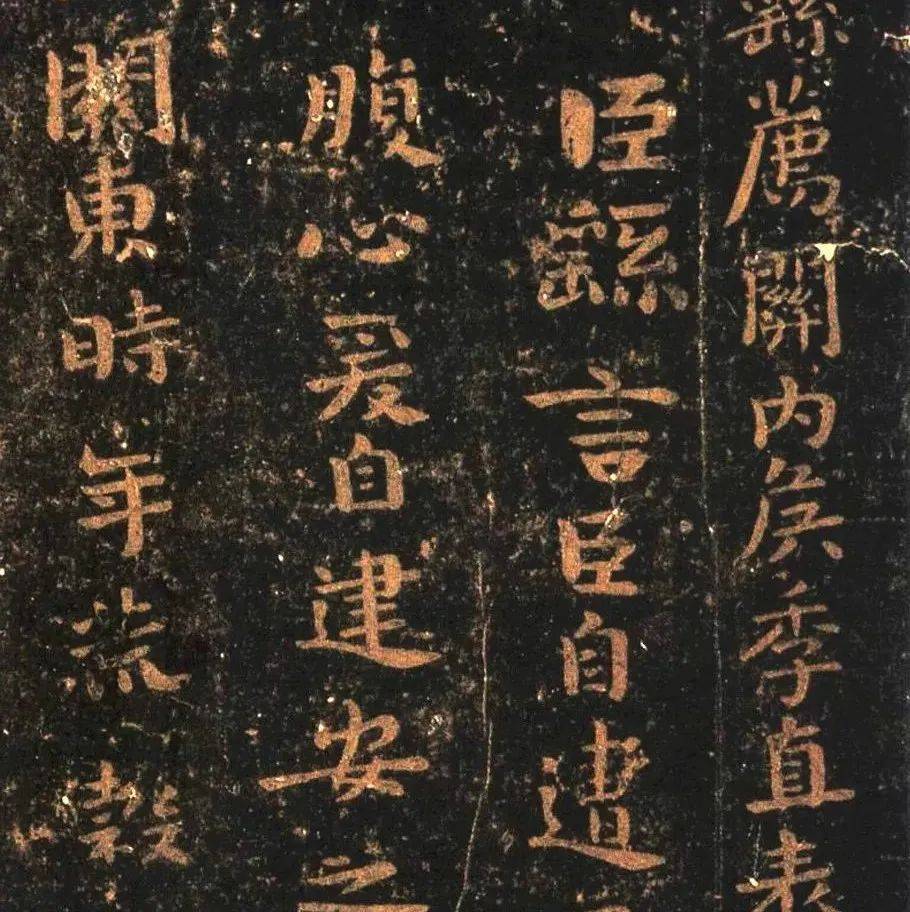 繇薦關内侯季直表
臣繇言臣自遭
腹心爰自建安之
關東時年荒榖